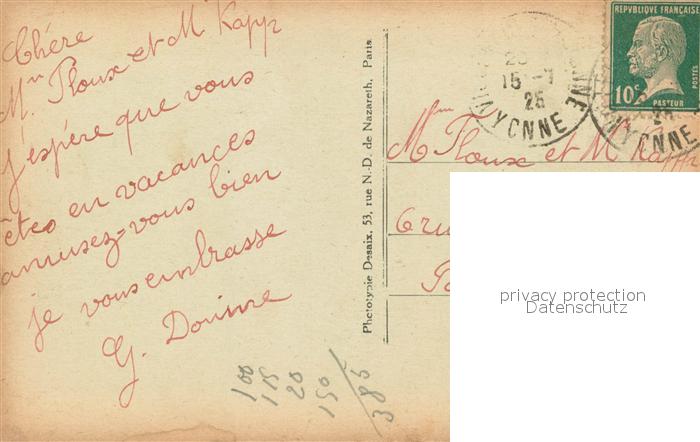 Chère
Mm Ploux et M Kapp
j'espère que vous
êtes en vacances
amusez-vous bien
je vous embrasse
G. Douine
100
115
20
150
385
Phototypie Desaix, 53, rue N.-D. de Nazareth, Paris
15 -7
25
MAYENNE
REPUBLIQUE FRANÇAISE
10c
PASTEUR
POSTES
Mm Ploux et Mr Kapp
privacy protection
Datenschutz